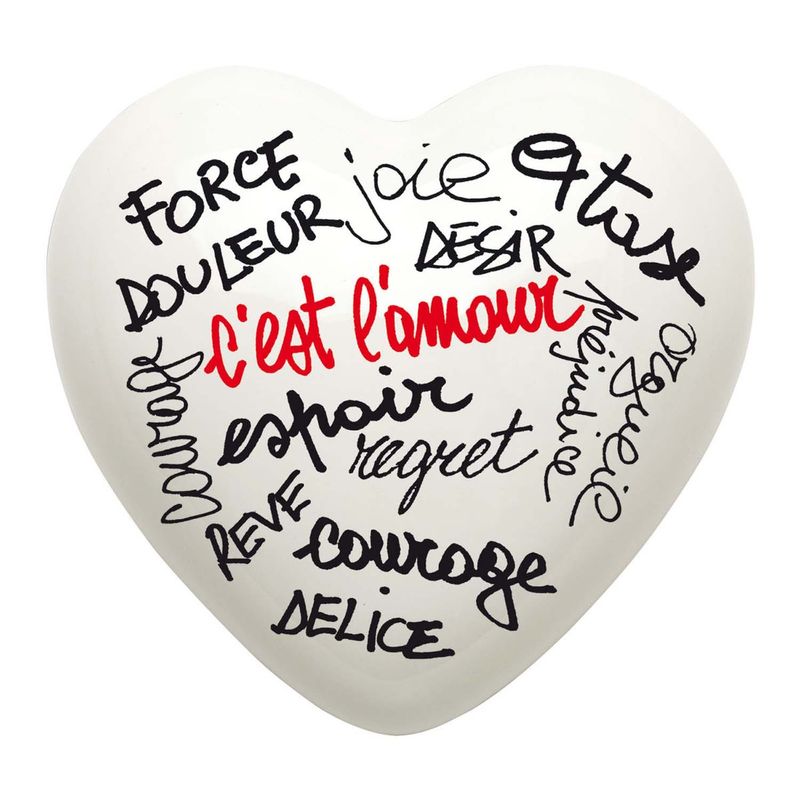 FORCE
joie
extase
DOULEUR
DESIR
c'est l'amour
préjudice
orgueil
courage
espoir
regret
REVE
courage
DELICE